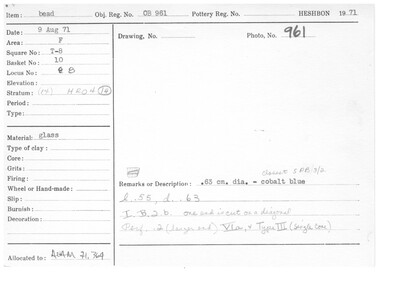 Item: bead Obj. Reg. No. OB 961 Pottery Reg. No. HESHBON 1971
Date: 9 Aug 71
Area: F
Square No: T-8
Basket No: 10
Locus No: B
Elevation:
Stratum: (14)
Period:
Type:
Drawing, No.
Photo, No. 961
Material: glass
Type of clay:
Core:
Grits:
Firing:
Wheel or Hand-made:
Slip:
Burnish:
Decoration:
Remarks or Description: .65 cm. dia. - cobalt blue
l. .55, d. .63
I. B. 2. b. one end is cut on a diagonal
Perf. .2 (larger end), Type III (single cone)
Allocated to: